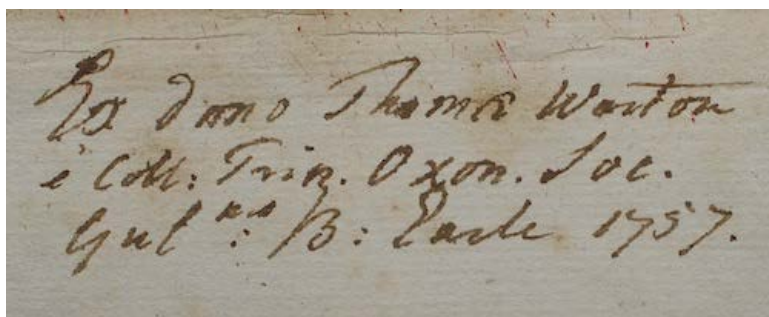 Ex dono Thomæ Warton
è Coll: Trin. Oxon. Soc.
Gul:mus B: Earle 1757.